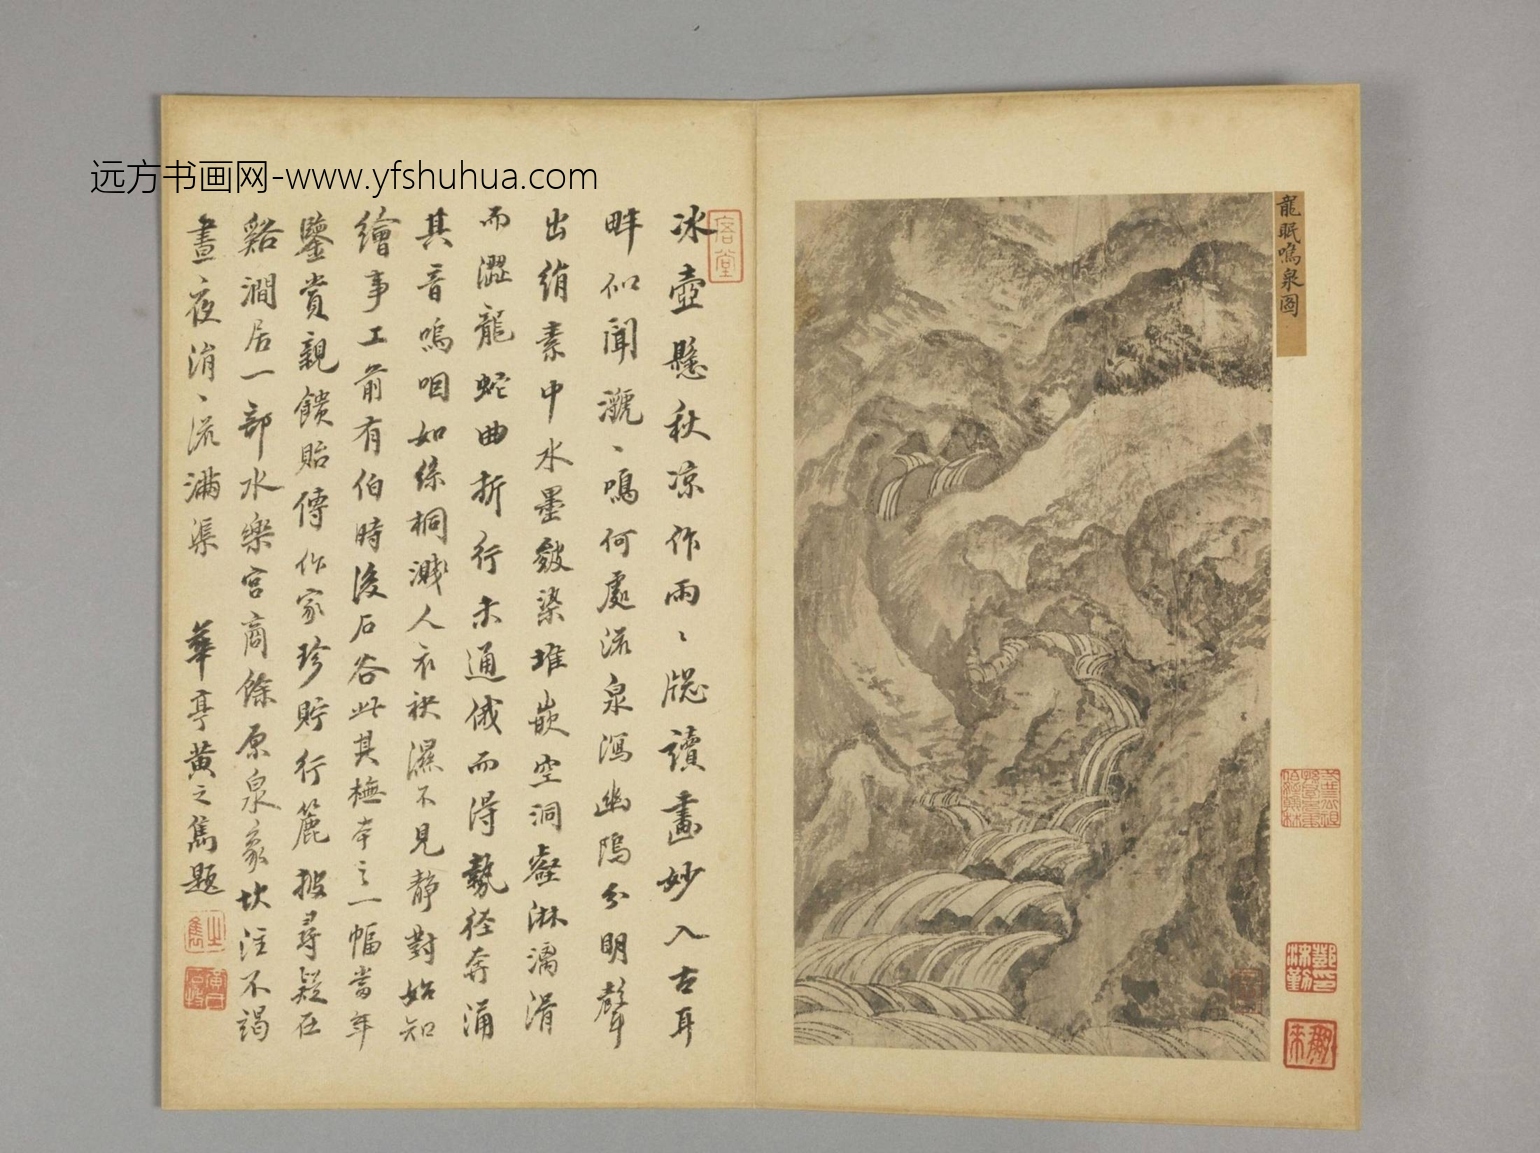 远方书画网-www.yfshuhua.com
龍眠鳴泉圖
冰壺懸秋凉作雨〻牎讀畫妙入古耳
畔似聞瀧〻鳴何處流泉瀉幽隝分明聲
出綃素中水墨皴染堆嵌空洞壑淋漓滑
而澀龍蛇曲折行未通俄而得勢徑奔涌
其音嗚咽如絲桐濺人衣袂濕不見靜對始知
繪事工前有伯時後石谷此其橅本之一幅當年
鑒賞親饋貽傳作家珍貯行簏披尋疑在
谿澗居一部水樂宫商餘原泉象坎注不竭
晝夜涓〻流滿渠 華亭黄之雋題